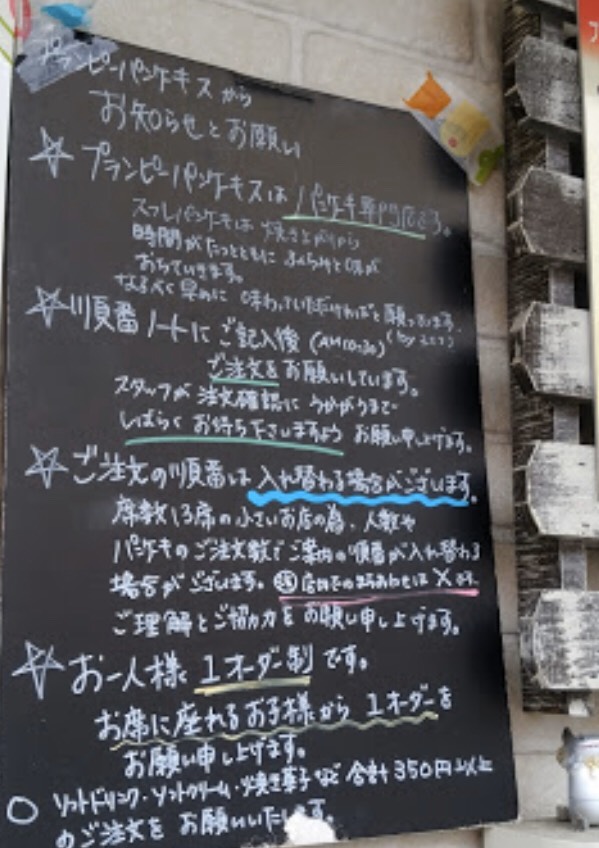 プランピーパンケーキスから
お知らせとお願い
☆プランピーパンケーキスは パンケーキ専門店です。
スフレパンケーキは 焼き上がりから
時間がたつとともに ふくらみと味が
おちていきます。
なるべく早めに 味わっていただければと願っています。
☆順番ノートにご記入後 (AM10:30)
ご注文をお願いしています。
スタッフが注文確認にうかがうまで
しばらくお待ち下さいますよう お願い申し上げます。
☆ご注文の順番は 入れ替わる場合がございます。
席数13席の小さいお店の為、人数や
パンケーキのご注文数でご案内の順番が入れ替わる
場合がございます。 店内での待ちあわせは×です。
ご理解とご協力をお願い申し上げます。
☆お一人様 1オーダー制です。
お席に座れるお子様から 1オーダーを
お願い申し上げます。
○ ソフトドリンク・ソフトクリーム・焼き菓子など 合計350円以上
のご注文を お願いいたします。